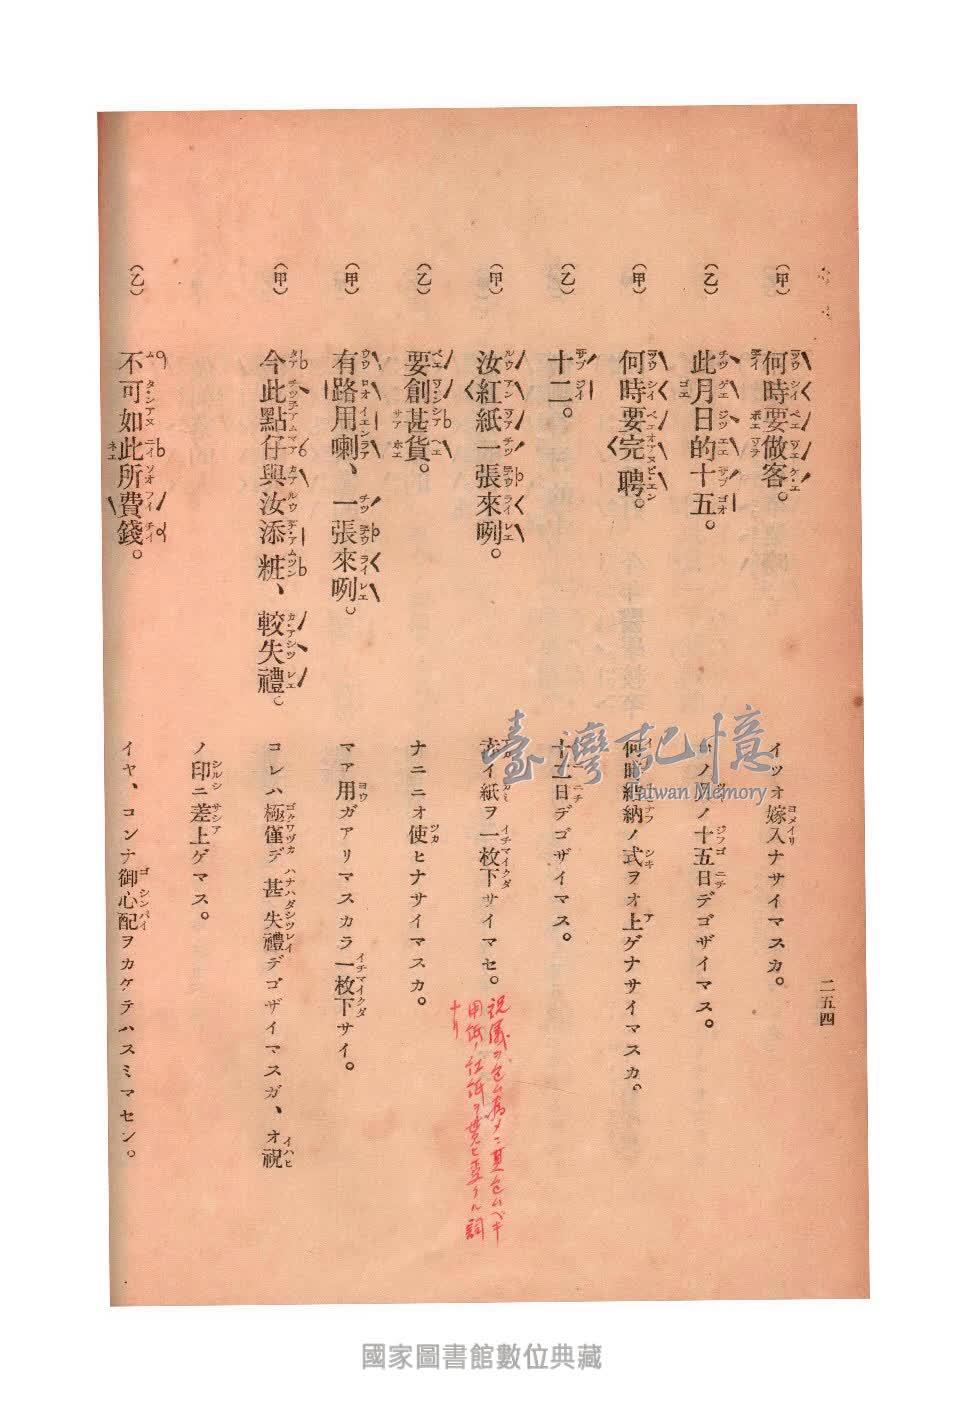 二五四
(甲) 何時要做客。 イツオ嫁入ナサイマスカ。
(乙) 此月日的十五。 コノ月ノ十五日デゴザイマス。
(甲) 何時要完聘。 何時結納ノ式ヲオ上ゲナサイマスカ。
(乙) 十二。 十二日デゴザイマス。
(甲) 汝紅紙一張來咧。 赤イ紙ヲ一枚下サイマセ。
祝儀ヲ包ム為メニ其包ムベキ
用紙ノ紅紙ヲ貰ヒ受クル詞
ナリ
(乙) 要創甚貨。 ナニニオ使ヒナサイマスカ。
(甲) 有路用喇、一張來咧。 マア用ガアリマスカラ一枚下サイ。
(甲) 今此點仔與汝添粧、較失禮。 コレハ極僅デ甚失禮デゴザイマスガ、オ祝
ノ印ニ差上ゲマス。
(乙) 不可如此所費錢。 イヤ、コンナ御心配ヲカケテハスミマセン。
臺灣記憶
Taiwan Memory
國家圖書館數位典藏